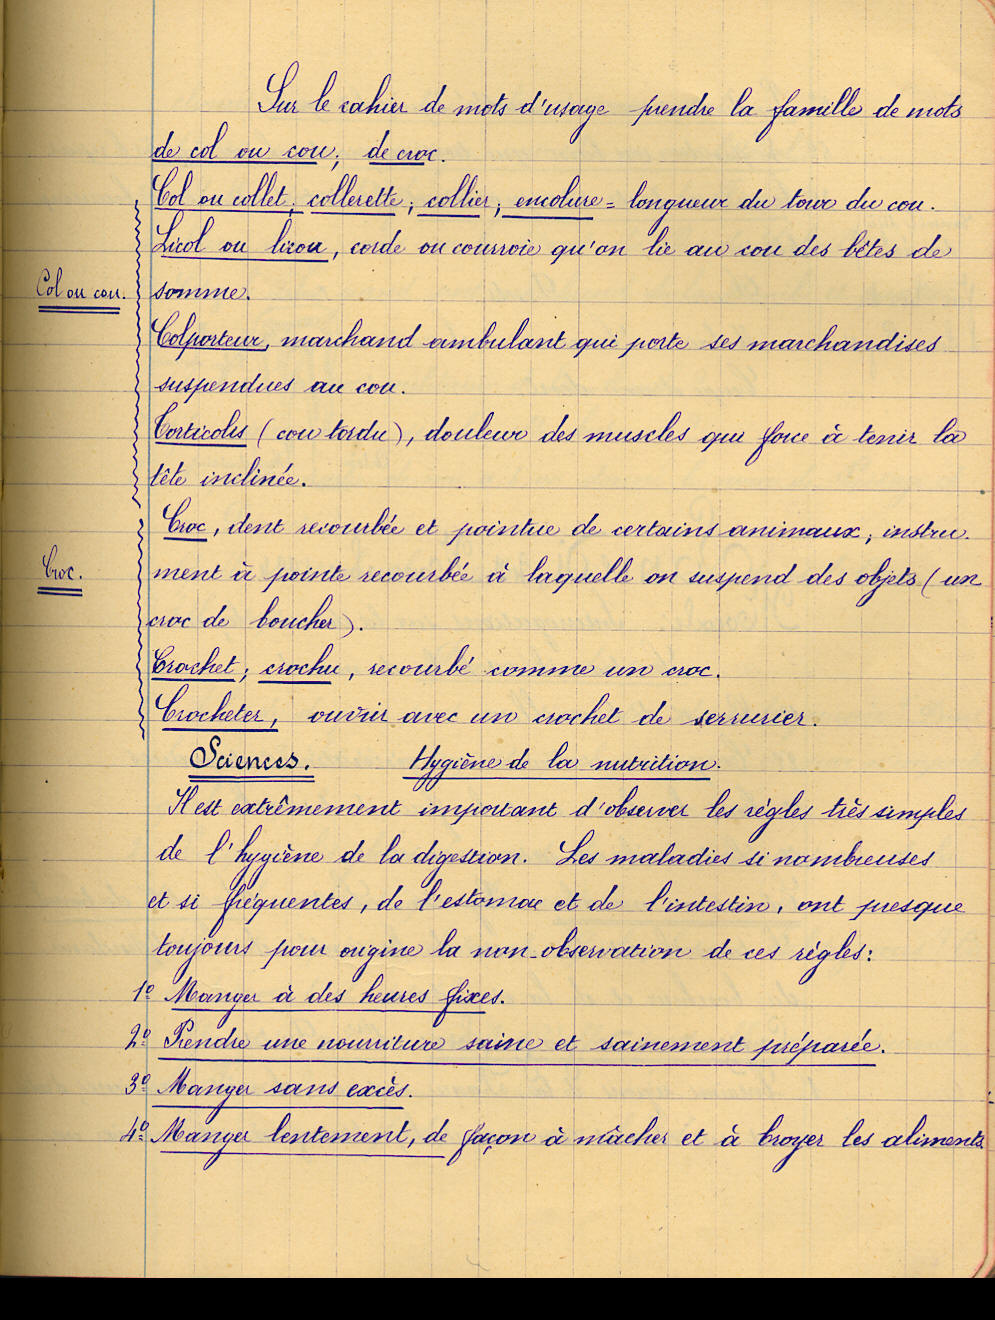 Sur le cahier de mots d'usage prendre la famille de mots
de col ou cou; de croc.
Col ou collet; collerette; collier; encolure = longueur du tour du cou.
Licol ou licou, corde ou courroie qu'on lie au cou des bêtes de
Col ou cou. somme.
Colporteur, marchand ambulant qui porte ses marchandises
suspendues au cou.
Torticolis (cou tordu), douleur des muscles qui force à tenir la
tête inclinée.
Croc, dent recourbée et pointue de certains animaux; instru-
Croc. ment à pointe recourbée à laquelle on suspend des objets (un
croc de boucher).
Crochet; crochu, recourbé comme un croc.
Crocheter, ouvrir avec un crochet de serrurier.
Sciences. Hygiène de la nutrition.
Il est extrêmement important d'observer les règles très simples
de l'hygiène de la digestion. Les maladies si nombreuses
et si fréquentes, de l'estomac et de l'intestin, ont presque
toujours pour origine la non-observation de ces règles:
1º Manger à des heures fixes.
2º Prendre une nourriture saine et sainement préparée.
3º Manger sans excès.
4º Manger lentement, de façon à mâcher et à broyer les aliments